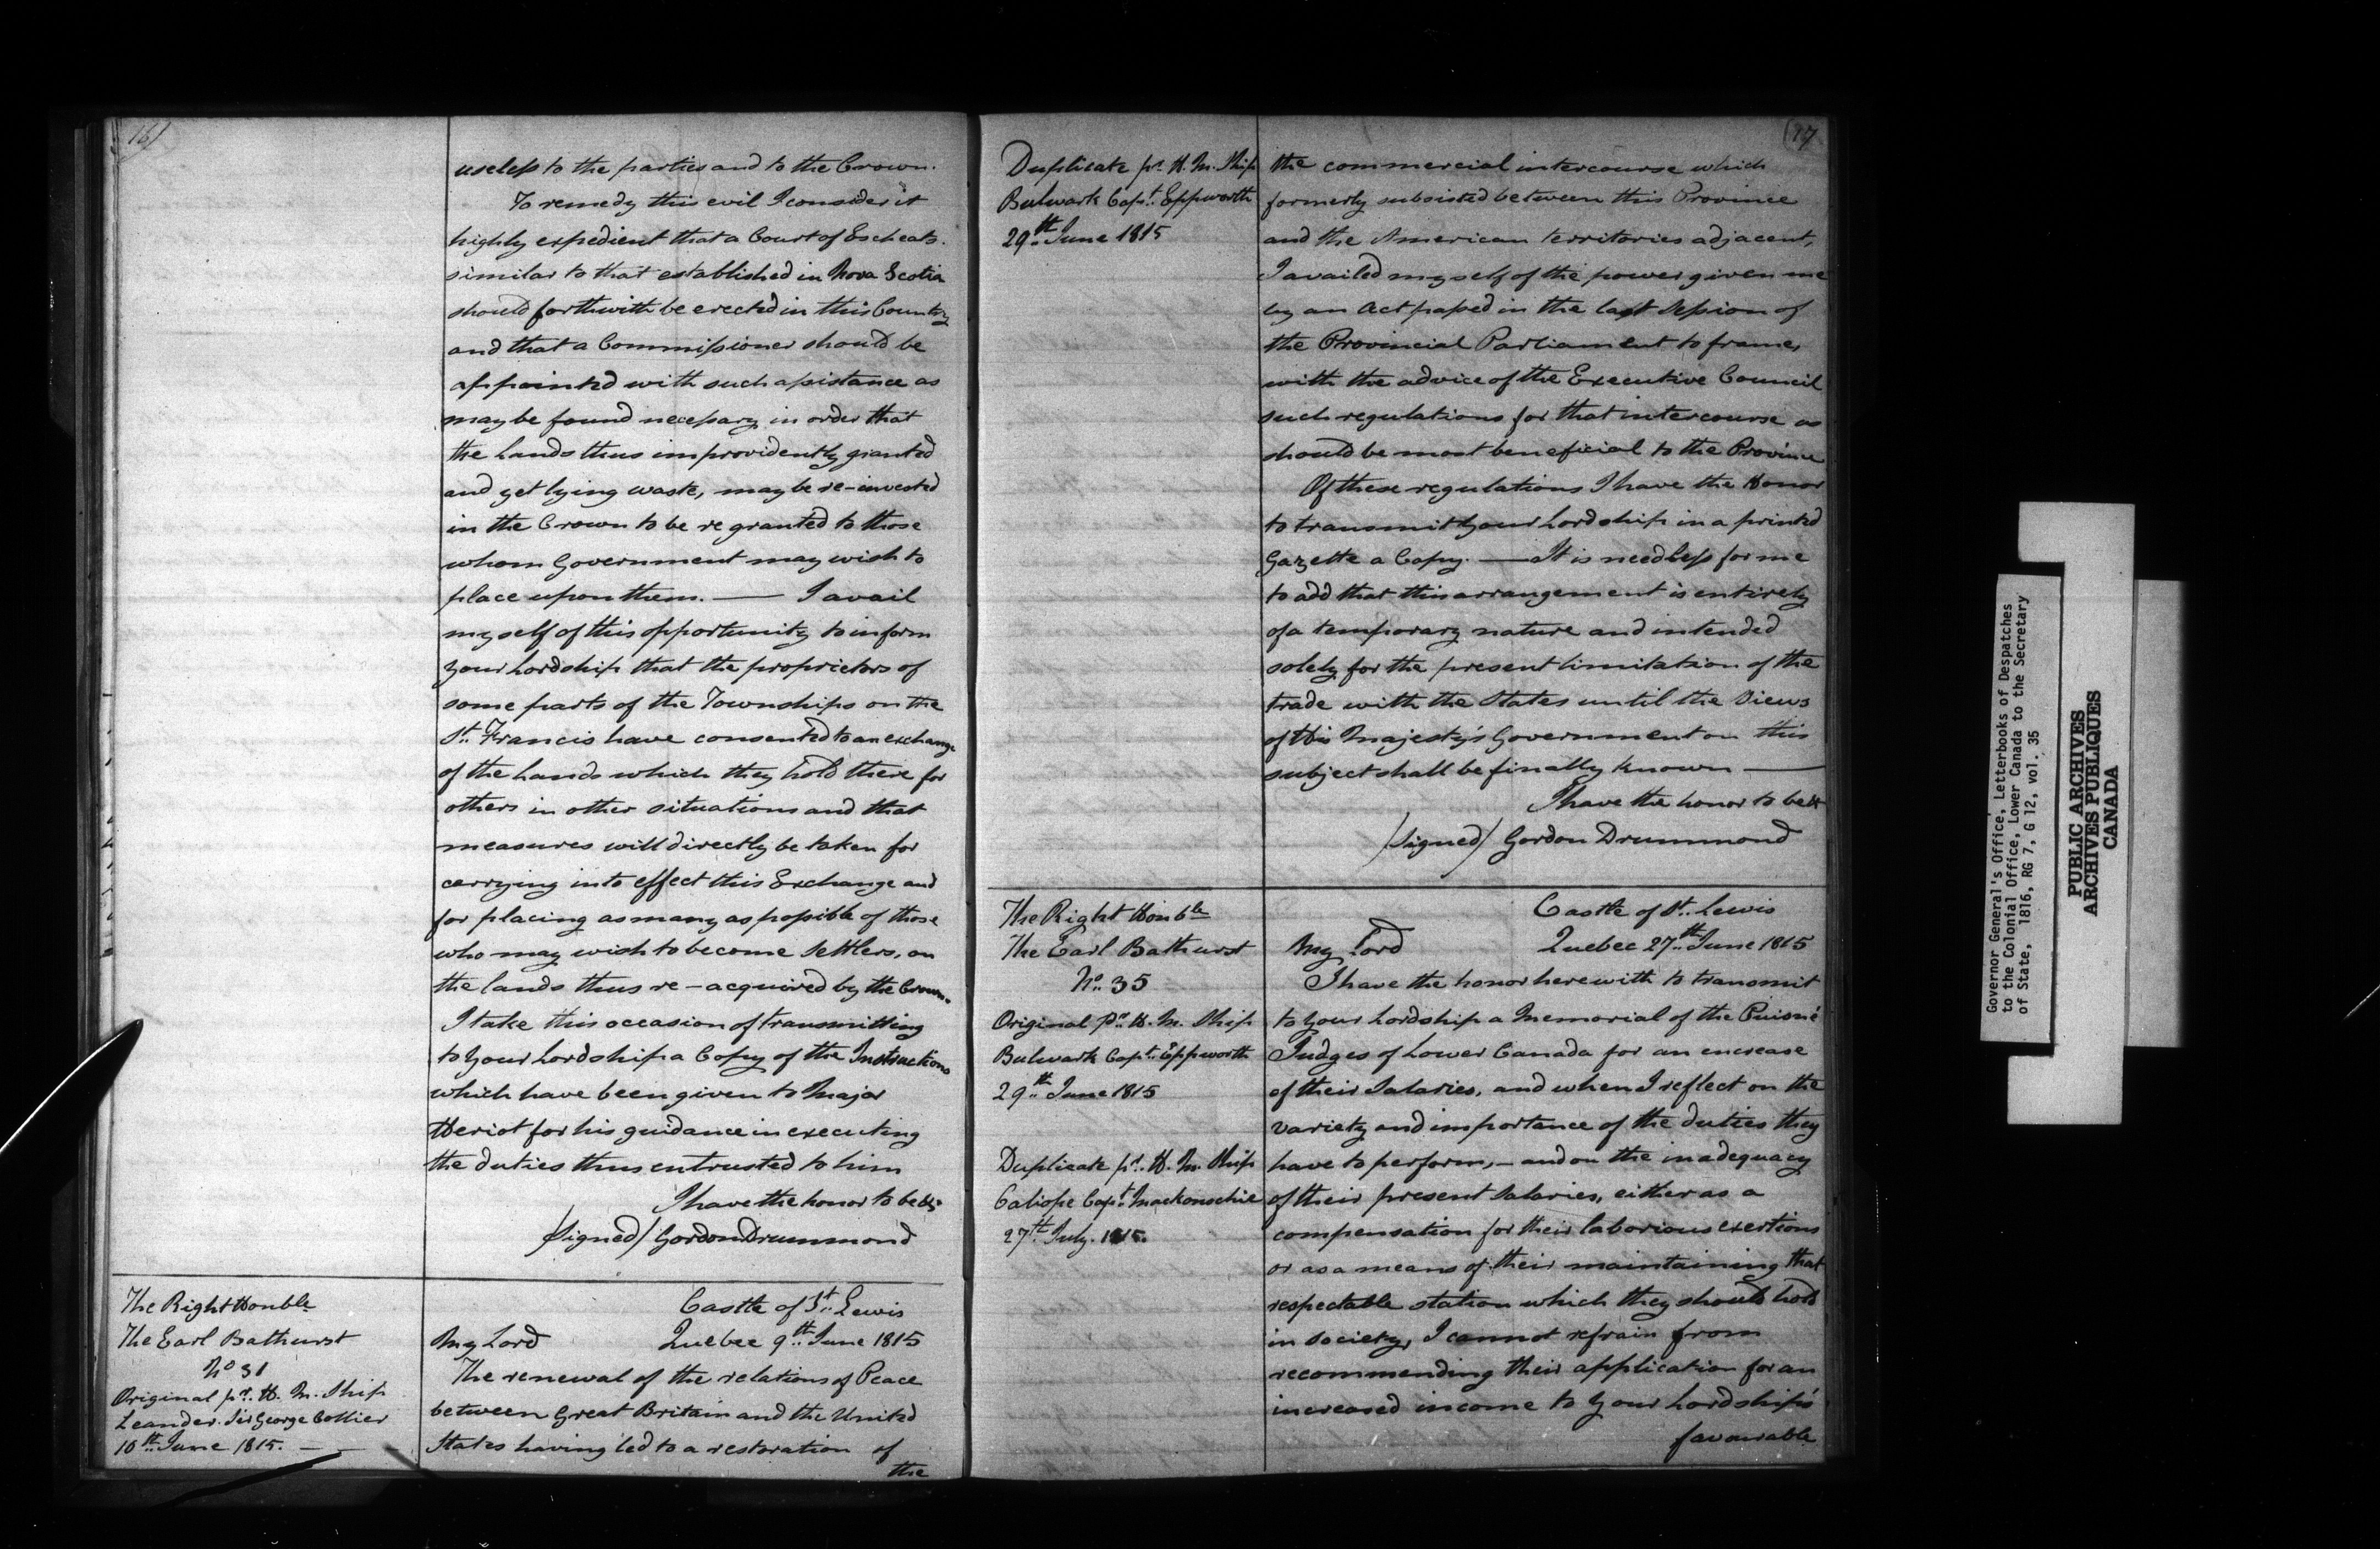 16)
useless to the parties and to the Crown.
To remedy this evil I consider it
highly expedient that a Court of Escheats.
similar to that established in Nova Scotia
should forthwith be erected in this Country
and that a Commissioner should be
appointed with such assistance as
may be found necessary in order that
the Lands thus improvidently granted
and yet lying waste, may be re-invested
in the Crown to be re granted to those
whom Government may wish to
place upon them. — I avail
myself of this opportunity to inform
your Lordship that the proprietors of
some parts of the Townships on the
St. Francis have consented to an exchange
of the Lands which they hold there for
others in other situations and that
measures will directly be taken for
carrying into effect this Exchange and
for placing as many as possible of those
who may wish to become Settlers, on
the lands thus re-acquired by the Crown.
I take this occasion of transmitting
to Your Lordship a Copy of the Instructions
which have been given to Major
Heriot for his guidance in executing
the duties thus entrusted to him
I have the honor to be &c
/Signed/ Gordon Drummond
The Right Honble
The Earl Bathurst
No 31
Original pr. H. M. Ship
Leander. Sir George Collier
10th June 1815. —
Castle of St. Lewis
My Lord Quebec 9th June 1815
The renewal of the relations of Peace
between Great Britain and the United
States having led to a restoration of
the
(17
Duplicate pr. H. M. Ship
Bulwark Capt. Eppworth
29th June 1815
the commercial intercourse which
formerly subsisted between this Province
and the American territories adjacent,
I availed myself of the power given me
by an Act passed in the last Session of
the Provincial Parliament to frame,
with the advice of the Executive Council
such regulations for that intercourse as
should be most beneficial to the Province
Of these regulations I have the Honor
to transmit Your Lordship in a printed
Gazette a Copy. — It is needless for me
to add that this arrangement is entirely
of a temporary nature and intended
solely for the present limitation of the
trade with the States until the Views
of His Majesty's Government on this
subject shall be finally known —
I have the honor to be &
/Signed/ Gordon Drummond
The Right Honble
The Earl Bathurst
No. 35
Original pr. H. M. Ship
Bulwark Capt. Eppworth
29th June 1815
Duplicate pr. H. M. Ship
Caliope Capt. Mackonochie
27th July. 1815.
Castle of St. Lewis
My Lord Quebec 27th June 1815
I have the honor herewith to transmit
to Your Lordship a Memorial of the Puisné
Judges of Lower Canada for an encrease
of their Salaries, and when I reflect on the
variety and importance of the duties they
have to perform, — and on the inadequacy
of their present Salaries, either as a
compensation for their laborious exertions
or as a means of their maintaining that
respectable station which they should hold
in society, I cannot refrain from
recommending their application for an
increased income to Your Lordship's
favourable
Governor General's Office, Letterbooks of Despatches
to the Colonial Office, Lower Canada to the Secretary
of State, 1816, RG 7, G 12, vol. 35
PUBLIC ARCHIVES
ARCHIVES PUBLIQUES
CANADA